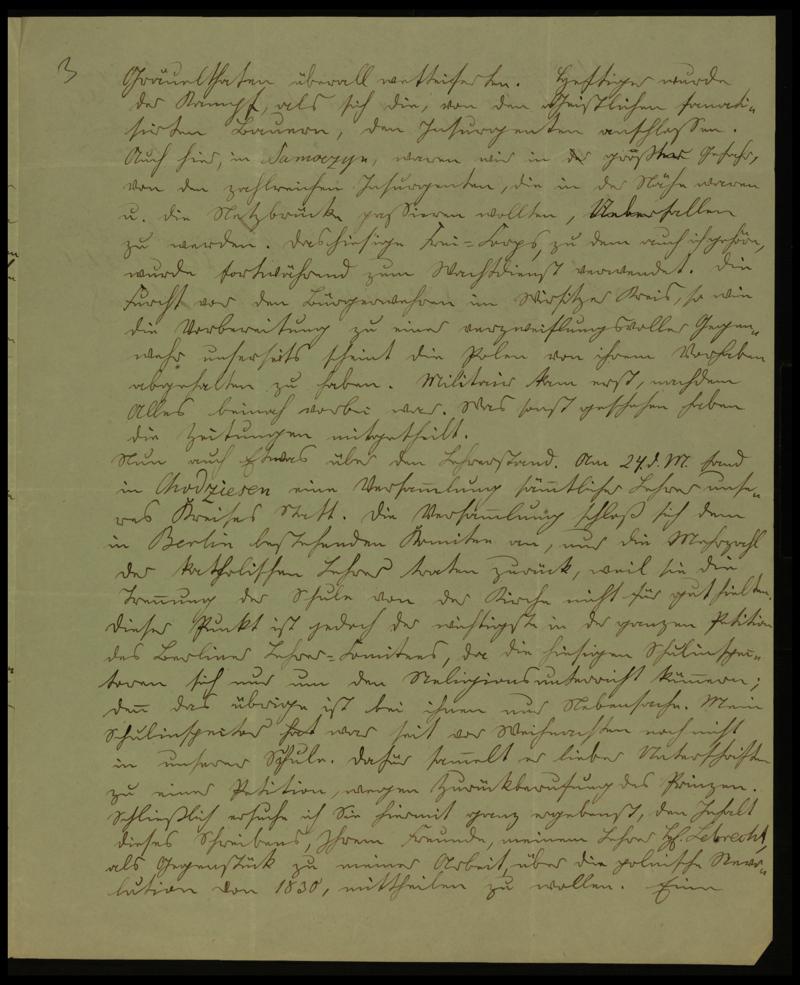 3
Gräuelthaten überall wetteiferten. Heftiger wurde
der Kampf, als sich die, von den Geistlichen fanati-
sirten Bauern, den Insurgenten anschlossen.
Auch hier, in Samoczyn, waren wir in der größten Gefahr,
von den zahlreichen Insurgenten, die in der Nähe waren
u. die Netzbrücke passieren wollten, Ueberfallen
zu werden. Das hiesige Frei=Corps, zu dem auch ich gehöre,
wurde fortwährend zum Wachtdienst verwendet. Die
Furcht vor den Bürgerwehren im Wirsitzer Kreis, so wie
die Vorbereitung zu einer verzweiflungsvoller Gegen-
wehr unserseits scheint die Polen von ihrem Vorhaben
abgehalten zu haben. Militair kam erst, nachdem
Alles beinah vorbei war. Was sonst geschehen haben
die Zeitungen mitgetheilt.
Nun auch Etwas über den Lehrerstand. Am 24. d. M. fand
in Chodziesen eine Versam̄lung säm̄tlicher Lehrer unse-
res Kreises Statt. Die Versam̄lung schloß sich dem
in Berlin bestehenden Komitee an, nur die Mehrzahl
der katholischen Lehrer traten zurück, weil sie die
Tren̄ung der Schule von der Kirche nicht für gut hielten.
Dieser Punkt ist jedoch der wichtigste in der ganzen Petition
des Berliner Lehrer=Comitees, da die hiesigen Schulinspec-
toren sich nur um den Religionsunterricht küm̄ern;
den̄ das übrige ist bei ihnen nur Nebensache. Mein
Schulinspector hat war seit vor Weihnachten noch nicht
in unserer Schule. Dafür sam̄elt er lieber Unterschriften
zu einer Petition, wegen Zurückberufung des Prinzen.
Schließlich ersuche ich Sie hiermit ganz ergebenst, den Inhalt
dieses Schreibens, Ihrem Freunde, meinem Lehrer H. Lebrecht,
als Gegenstück zu meiner Arbeit, über die polnische Revo-
lution von 1830, mittheilen zu wollen. Eine